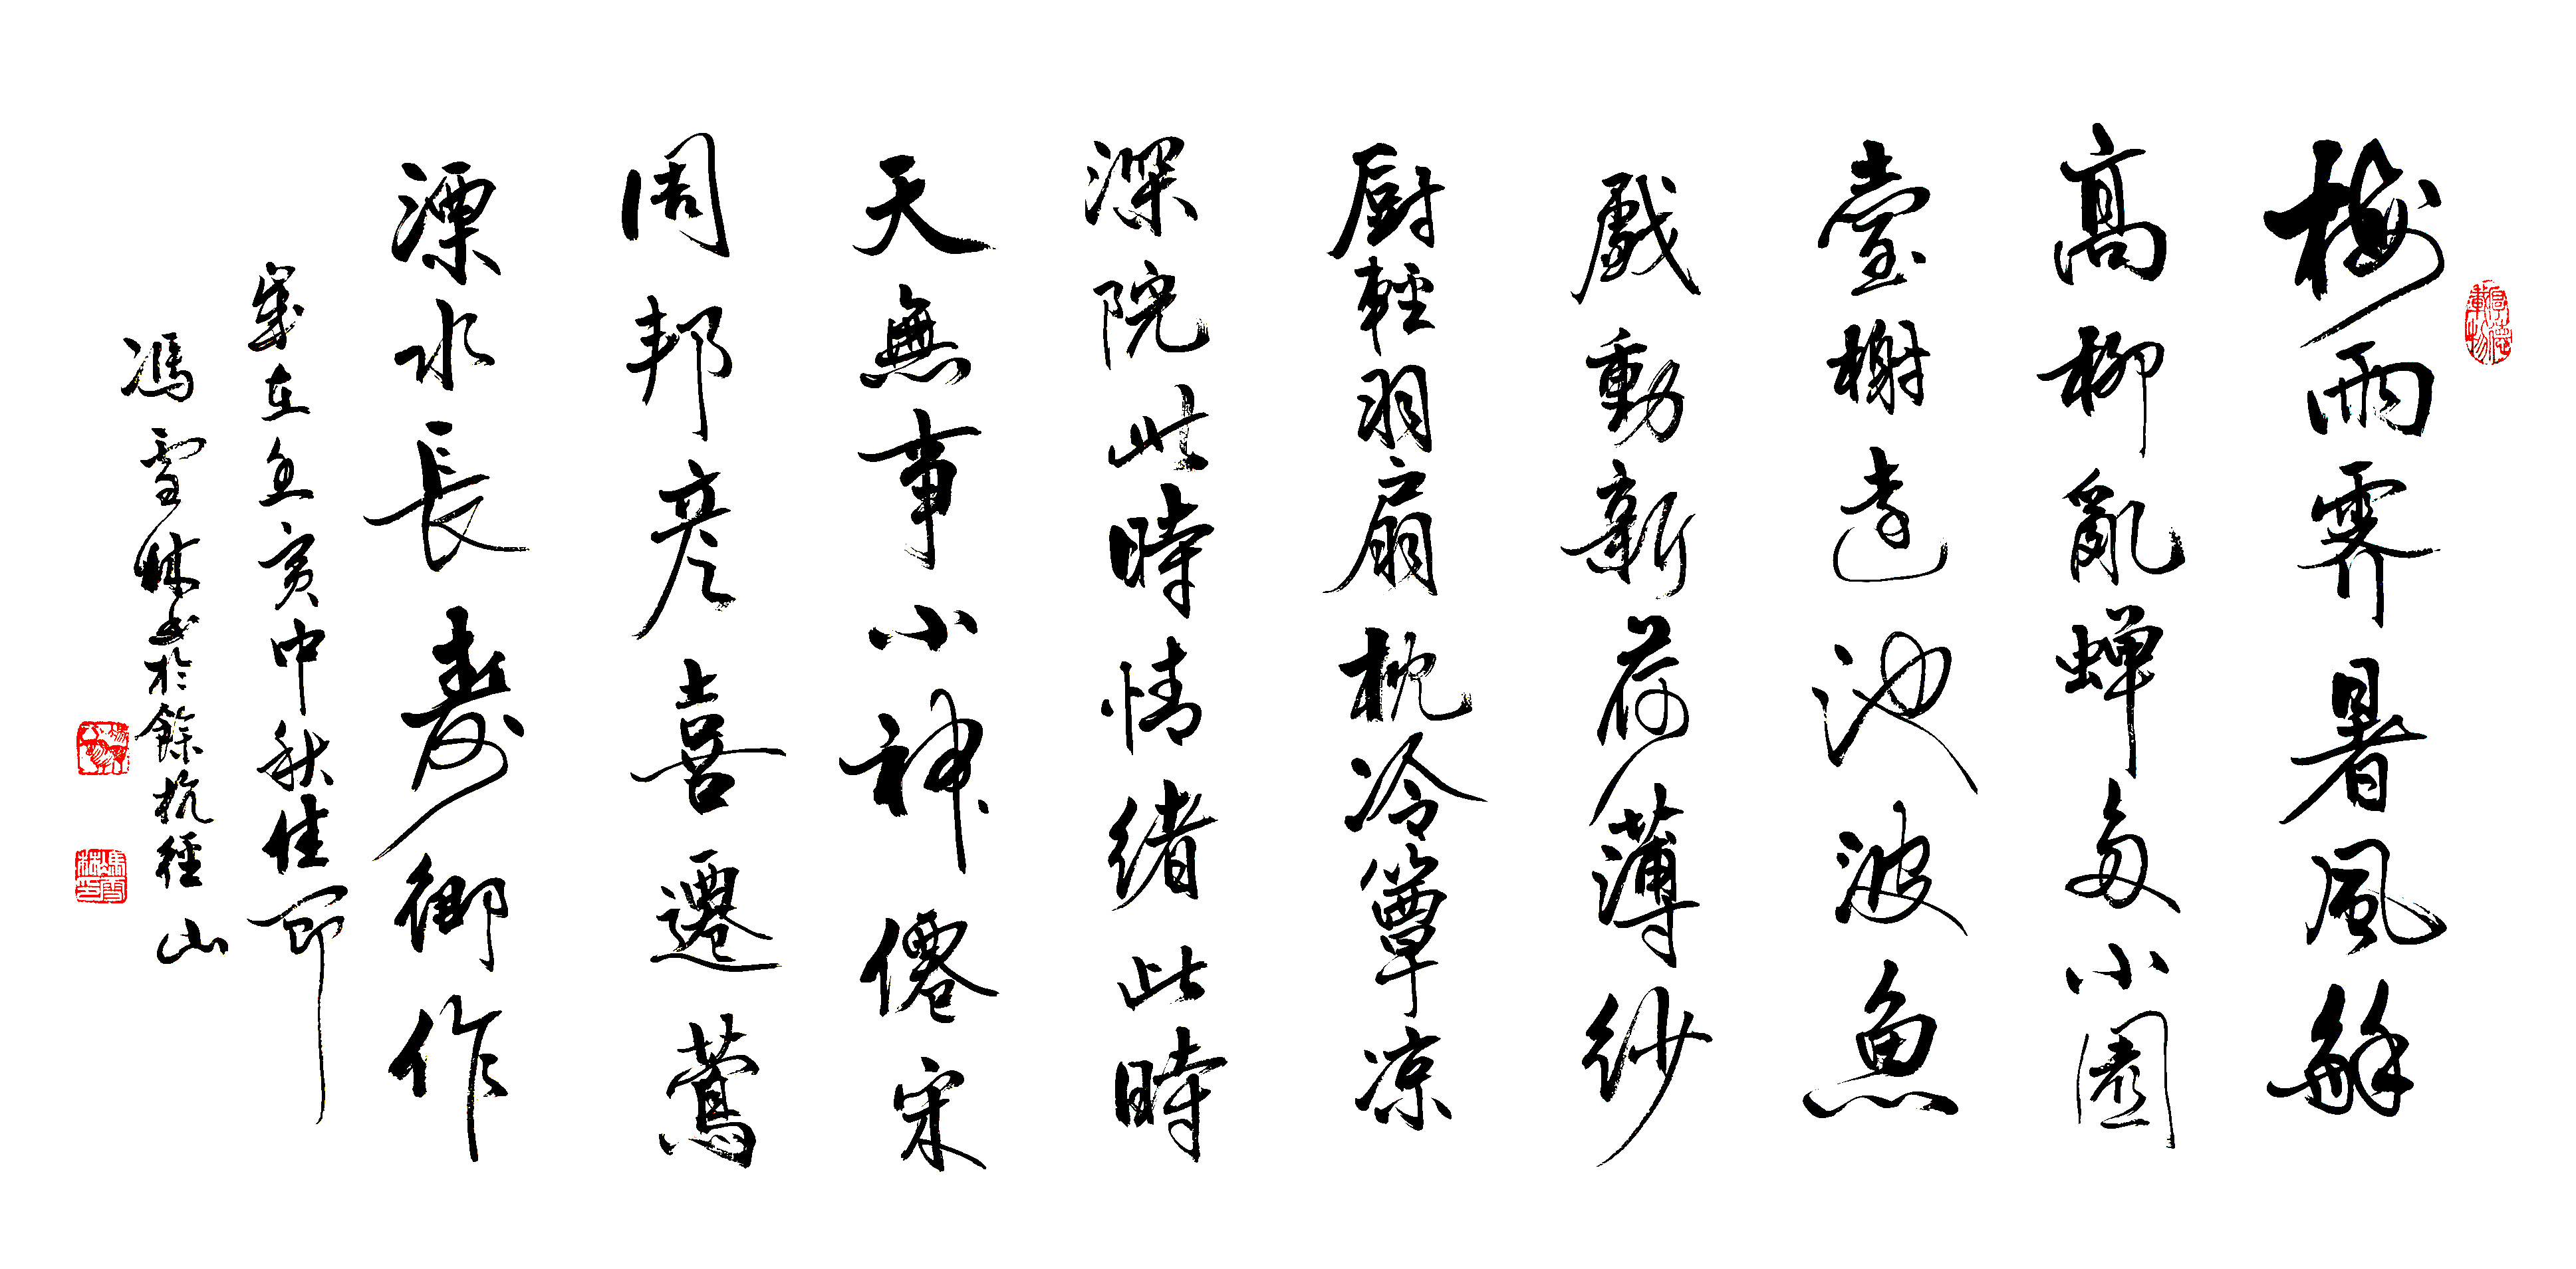 梅雨霽暑風龢
高柳亂蟬多小園
臺榭遠池波魚
戲動新荷薄紗
厨輕羽扇枕冷簟凉
深院此時情緒此時
天無事小神僊宋
周邦彦喜遷鶯
溧水長壽鄉作
歲在己亥中秋佳節
馮雪林書於餘杭徑山
厚德載物
馮雪林印